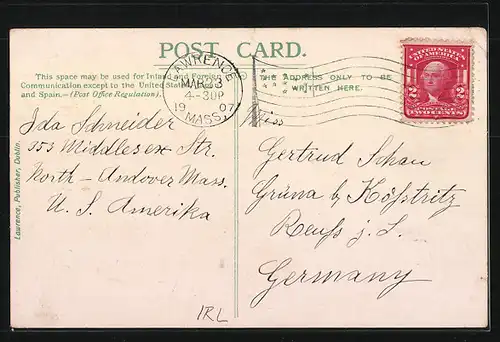 POST CARD.
This space may be used for Inland and Foreign
Communication except to the United States
and Spain.—(Post Office Regulation).
THE ADDRESS ONLY TO BE
WRITTEN HERE.
LAWRENCE
MAR 23
4-30P
1907
MASS.
UNITED STATES
OF AMERICA
2 2
POSTAGE
TWO CENTS
Ida Schneider
353 Middlesex Str.
North-Andover Mass.
U. S. Amerika
Miss
Gertrud Schau
Grüna by Kößtritz
Reuß j. L.
Germany
Lawrence, Publisher, Dublin.
IRL